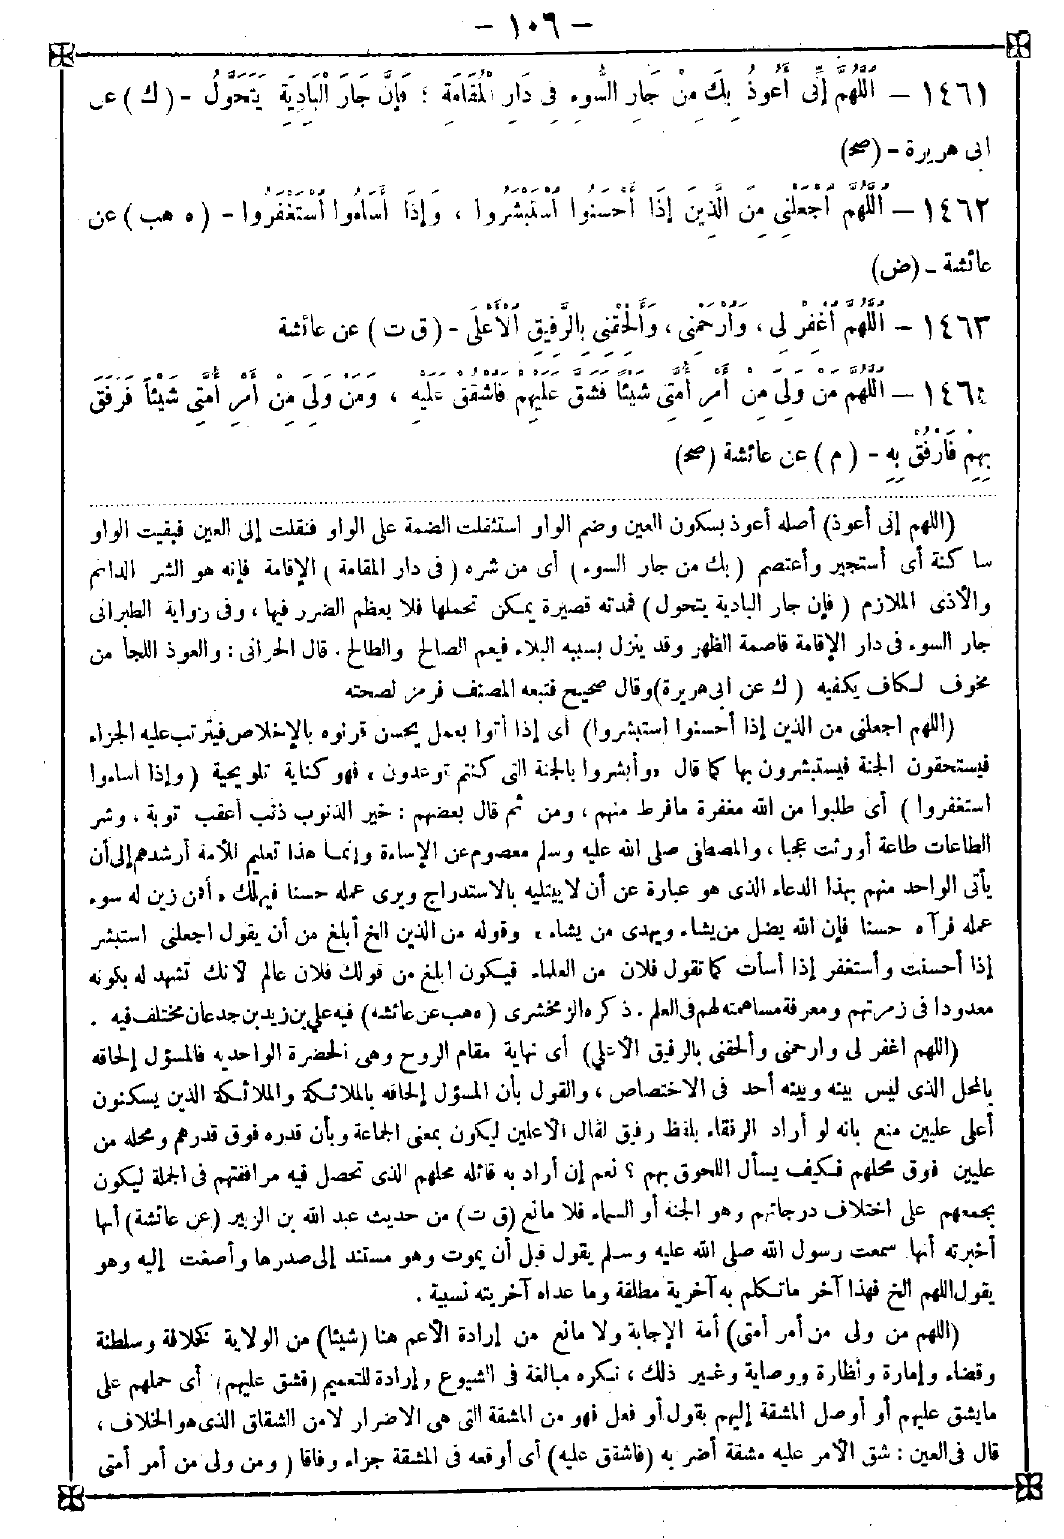 - ١٠٦ -
١٤٦١ - اَللّٰهُمَّ إِنِّى أَعُوذُ بِكَ مِنْ جَارِ السُّوءِ فِى دَارِ الْمُقَامَةِ ؛ فَإِنَّ جَارَ الْبَادِيَةِ يَتَحَوَّلُ - ( ك ) عن
ابى هريرة - (صح)
١٤٦٢ - اَللّٰهُمَّ اجْعَلْنِى مِنَ الَّذِينَ إِذَا أَحْسَنُوا اسْتَبْشَرُوا ، وَإِذَا أَسَاءُوا اسْتَغْفَرُوا - ( ه هب ) عن
عائشة - (ض)
١٤٦٣ - اَللّٰهُمَّ اغْفِرْ لِى ، وَارْحَمْنِى ، وَأَلْحِقْنِى بِالرَّفِيقِ الْأَعْلَى - ( ق ت ) عن عائشة
١٤٦٤ - اَللّٰهُمَّ مَنْ وَلِىَ مِنْ أَمْرِ أُمَّتِى شَيْئًا فَشَقَّ عَلَيْهِمْ فَاشْقُقْ عَلَيْهِ ، وَمَنْ وَلِىَ مِنْ أَمْرِ أُمَّتِى شَيْئًا فَرَفَقَ
بِهِمْ فَارْفُقْ بِهِ - ( م ) عن عائشة (صح)
(اللهم إنى أعوذ) أصله أعوذ بسكون العين وضم الواو استثقلت الضمة على الواو فنقلت إلى العين فبقيت الواو
ساكنة أى أستجير وأعتصم ( بك من جار السوء ) أى من شره ( فى دار المقامة ) الإقامة فإنه هو الشر الدائم
والأذى الملازم ( فإن جار البادية يتحول ) فمدته قصيرة يمكن تحملها فلا يعظم الضرر فيها ، وفى رواية الطبرانى
جار السوء فى دار الإقامة قاصمة الظهر وقد ينزل بسببه البلاء فيعم الصالح والطالح . قال الحرانى : والعوذ اللجا من
مخوف لكاف يكفيه ( ك عن ابى هريرة) وقال صحيح فتبعه المصنف فرمز لصحته
(اللهم اجعلنى من الذين إذا أحسنوا استبشروا) أى إذا أتوا بعمل يحسن قرنوه بالإخلاص فيترتب عليه الجزاء
فيستحقون الجنة فيستبشرون بها كما قال «وأبشروا بالجنة التى كنتم توعدون » فهو كناية تلويحية ( وإذا اساءوا
استغفروا ) أى طلبوا من الله مغفرة ما فرط منهم ، ومن ثم قال بعضهم : خير الذنوب ذنب أعقب توبة ، وشر
الطاعات طاعة أورثت عجبا ، والمصطفى صلى الله عليه وسلم معصوم عن الإساءة وإنما هذا تعليم للأمة أرشدهم إلى أن
يأتى الواحد منهم بهذا الدعاء الذى هو عبارة عن أن لا يبتليه بالاستدراج ويرى عمله حسنا فيهلك « أفمن زين له سوء
عمله فرآه حسنا فإن الله يضل من يشاء ويهدى من يشاء » وقوله من الذين الخ أبلغ من أن يقول اجعلنى استبشر
إذا أحسنت وأستغفر إذا أسأت كما تقول فلان من العلماء فيكون ابلغ من قولك فلان عالم لأنك تشهد له بكونه
معدودا فى زمرتهم ومعرفة مساهمته لهم فى العلم . ذكره الزمخشرى ( ه هب عن عائشه) فيه علي بن زيد بن جدعان مختلف فيه .
(اللهم اغفر لى وارحمنى وألحقنى بالرفيق الأعلي) أى نهاية مقام الروح وهى الحضرة الواحديه فالمسؤل إلحاقه
بالمحل الذى ليس بينه وبينه أحد فى الاختصاص ، والقول بأن المسؤل إلحاقه بالملائكة والملائكة الذين يسكنون
أعلى عليين منع بانه لو أراد الرفقاء بلفظ رفيق لقال الأعلين ليكون بمعنى الجماعة وبأن قدره فوق قدرهم ومحله من
عليين فوق محلهم فكيف يسأل اللحوق بهم ؟ نعم إن أراد به قائله محلهم الذى تحصل فيه مرافقتهم فى الجملة ليكون
بجمعهم على اختلاف درجاتهم وهو الجنة أو السماء فلا مانع (ق ت) من حديث عبد الله بن الزبير (عن عائشة) أنها
أخبرته أنها سمعت رسول الله صلى الله عليه وسلم يقول قبل أن يموت وهو مستند إلى صدرها وأصغت إليه وهو
يقول اللهم الخ فهذا آخر ما تكلم به آخرية مطلقة وما عداه آخريته نسبية .
(اللهم من ولى من أمر أمتى) أمة الإجابة ولا مانع من إرادة الأعم هنا (شيئا) من الولاية كخلافة وسلطنة
وقضاء وإمارة ونظارة ووصاية وغير ذلك ، نكره مبالغة فى الشيوع وإرادة للتعميم (فشق عليهم) أى حملهم على
ما يشق عليهم أو أوصل المشقة إليهم بقول أو فعل فهو من المشقة التى هى الاضرار لا من الشقاق الذى هو الخلاف ،
قال فى العين : شق الأمر عليه مشقة أضر به (فاشقق عليه) أى أوقعه فى المشقة جزاء وفاقا ( ومن ولى من أمر أمتى